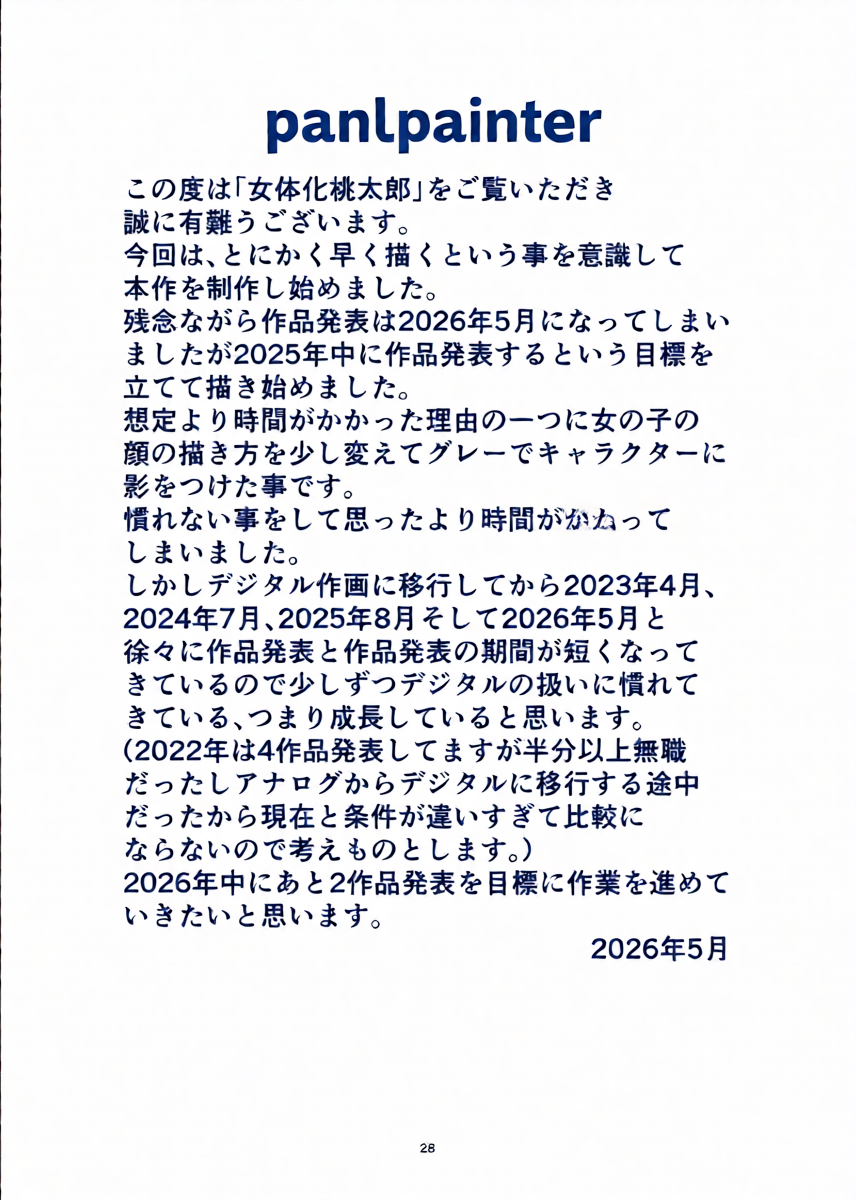 panlpainter
この度は「女体化桃太郎」をご覧いただき
誠に有難うございます。
今回は、とにかく早く描くという事を意識して
本作を制作し始めました。
残念ながら作品発表は2026年5月になってしまい
ましたが2025年中に作品発表するという目標を
立てて描き始めました。
想定より時間がかかった理由の一つに女の子の
顔の描き方を少し変えてグレーでキャラクターに
影をつけた事です。
慣れない事をして思ったより時間がかかって
しまいました。
しかしデジタル作画に移行してから2023年4月、
2024年7月、2025年8月そして2026年5月と
徐々に作品発表と作品発表の期間が短くなって
きているので少しずつデジタルの扱いに慣れて
きている、つまり成長していると思います。
(2022年は4作品発表してますが半分以上無職
だったしアナログからデジタルに移行する途中
だったから現在と条件が違いすぎて比較に
ならないので考えものとします。)
2026年中にあと2作品発表を目標に作業を進めて
いきたいと思います。
2026年5月
28